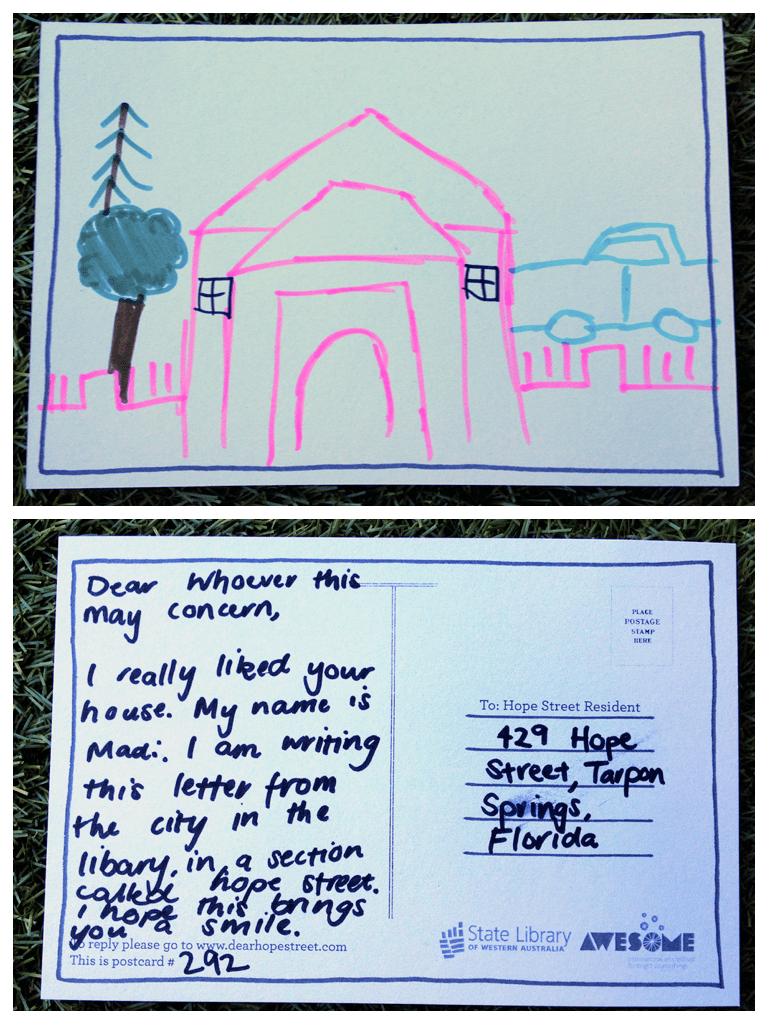 Dear Whoever this
may concern,
I really liked your
house. My name is
Madi. I am writing
this letter from
the city in the
libary, in a section
called hope street.
I hope this brings
you a smile.
To reply please go to www.dearhopestreet.com
This is postcard # 292
PLACE
POSTAGE
STAMP
HERE
To: Hope Street Resident
429 Hope
Street, Tarpon
Springs,
Florida
State Library
OF WESTERN AUSTRALIA
AWESOME